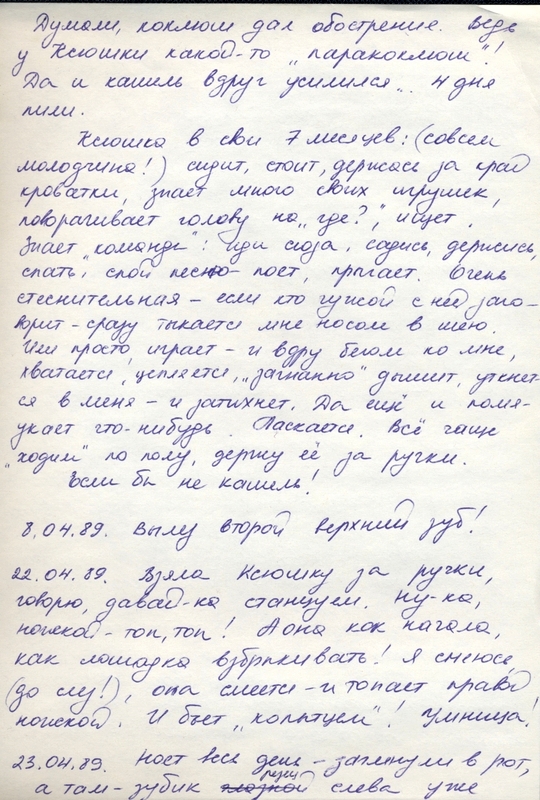 Думали, коклюш дал обострение. Ведь
у Ксюшки какой-то „паракоклюш"!
Да и кашель вдруг усилился... 4 дня
пили.
Ксюшка в свои 7 месяцев: (совсем
молодчина!) сидит, стоит, держась за край
кроватки, знает много своих игрушек,
поворачивает голову на „где?", ищет.
Знает „команды": иди сюда, садись, держись,
спать, спой песню - поёт, прыгает. Очень
стеснительная - если кто чужой с ней заго-
ворит - сразу тыкается мне носом в шею.
Или просто играет - и вдруг бегом ко мне,
хватается, цепляется, „загнанно" дышит, уткнёт-
ся в меня - и затихнет. Да ещё и помя-
укает что-нибудь. Ласкается. Всё чаще
„ходим" по полу, держу её за ручки.
Если бы не кашель!
8.04.89. Вылез второй верхний зуб!
22.04.89. Взяла Ксюшку за ручки,
говорю, давай-ка станцуем. Ну-ка,
ножкой - топ, топ! А она как начала,
как лошадка взбрыкивать! Я смеюсь
(до слёз!), она смеётся - и топает правой
ножкой. И бьёт „копытцем"! Умница!
23.04.89. Ноет весь день - заглянули в рот,
а там - зубик резец слева уже